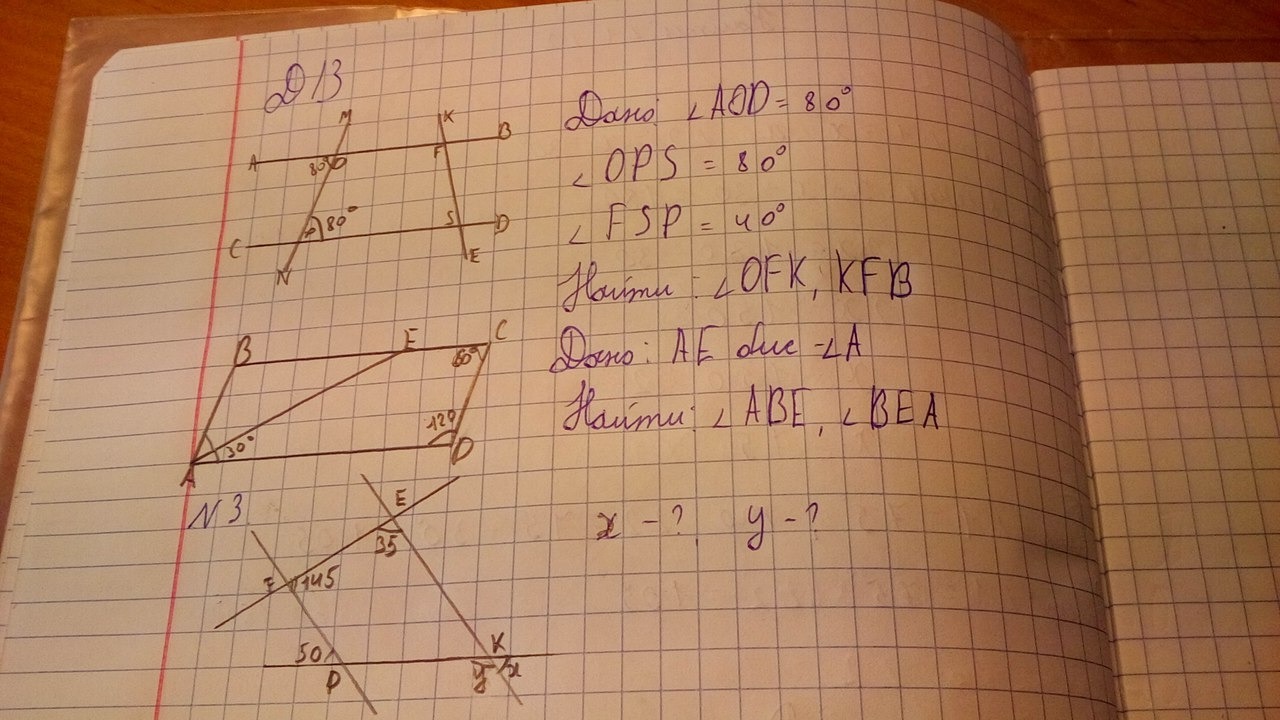 Д/З
M K
A 80° O F B
C P 80° S D
N E
Дано: ∠AOD = 80°
∠OPS = 80°
∠FSP = 40°
Найти: ∠OFK, KFB
B E C
60°
A 30° 120 D
Дано: AE бис -∠A
Найти: ∠ABE, ∠BEA
N3
E
35
F 145
50 K
P y x
x - ? y - ?